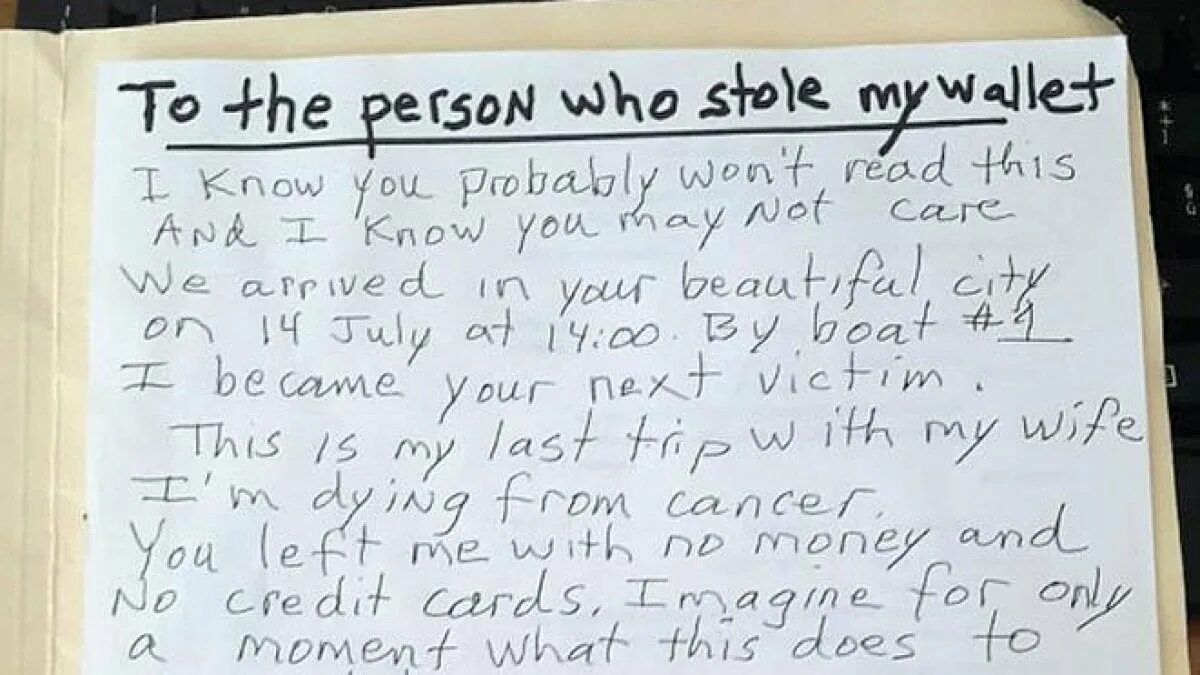 To the person who stole my wallet
I know you probably won't read this
And I know you may not care
We arrived in your beautiful city
on 14 July at 14:00. By boat #1
I became your next victim.
This is my last trip with my wife
I'm dying from cancer.
You left me with no money and
No credit cards. Imagine for only
a moment what this does to